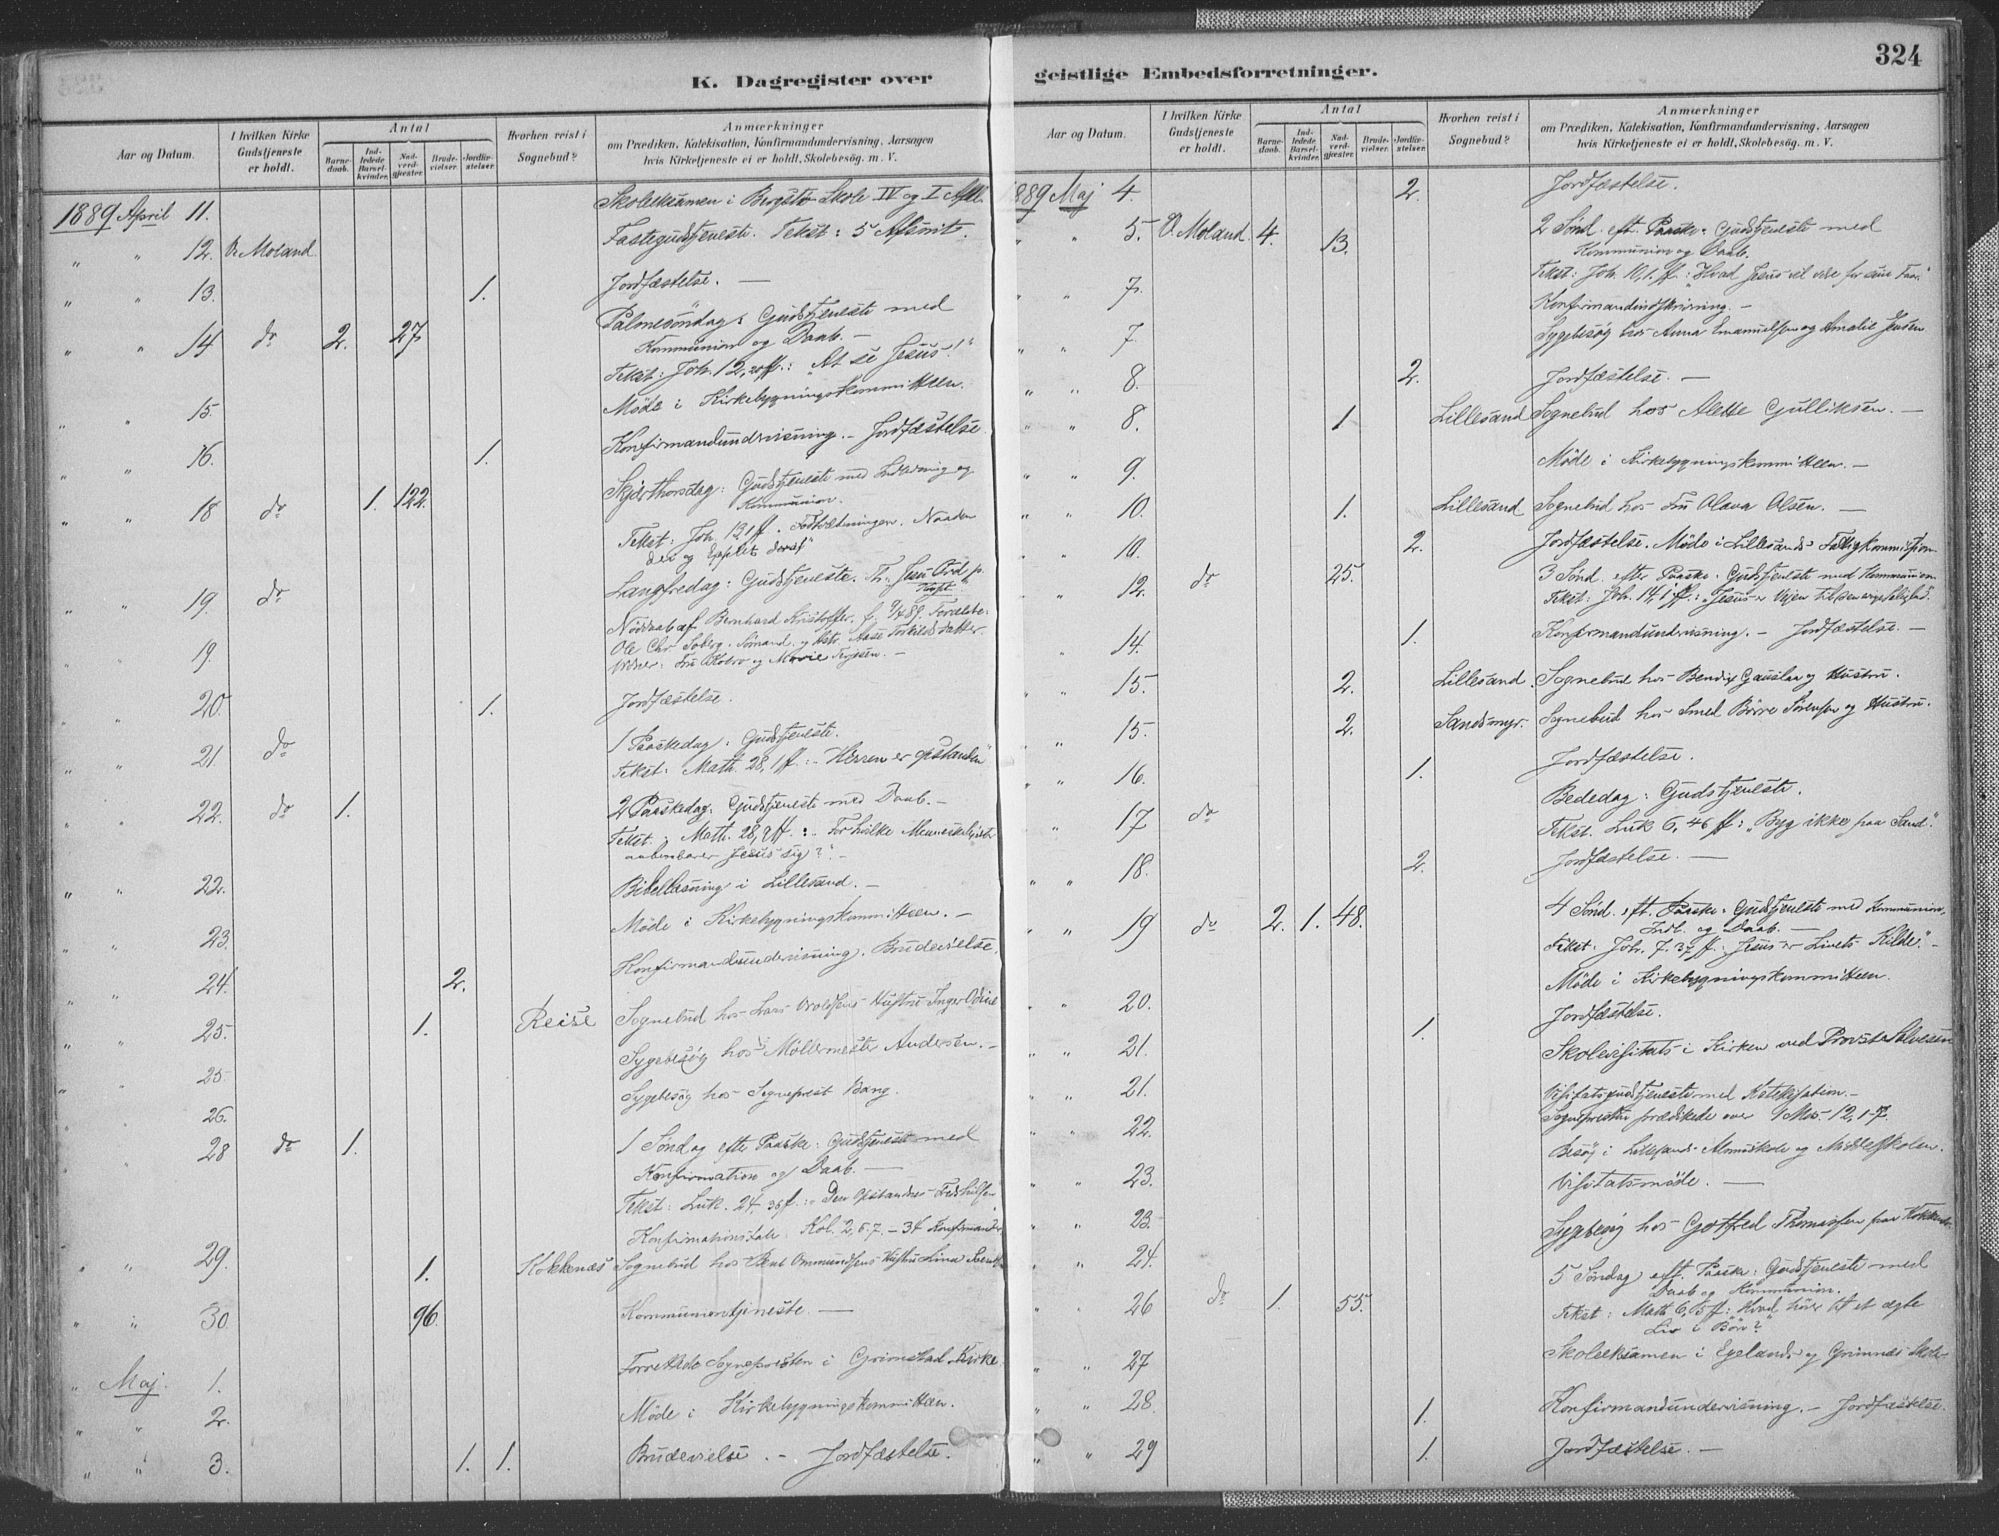 324
K. Dagregister over geistlige Embedsforretninger.
Aar og Datum.
I hvilken Kirke Gudstjeneste er holdt.
Antal
Barnedaab.
Indledede Barselkvinder.
Nadverdgjester.
Brudevielser.
Jordfæstelser.
Hvorhen reist i Sognebud?
Anmærkninger
om Prædiken, Katekisation, Konfirmandundervisning, Aarsagen
hvis Kirketjeneste ei er holdt, Skolebesøg. m. V.
1889 April 11. Skoleeksamen i Skole IV og I Afd.
" " 12. V. Moland. Fastegudstjeneste. Tekst: 5 Afsnit.
" " 13. 1. Jordfæstelse. —
" " 14 do 2. 27 Palmesöndag: Gudstjeneste med
Kommunion og Daab. —
Tekst: Joh. 12, 20 ff.: "At se Jesus!"
" " 15. Møde i Kirkebygningskommitteen.
" " 16. 1. Konfirmandundervisning. — Jordfæstelse
" " 18 do 1. 122. Skjærthorsdag: Gudstjeneste med Indledning og
Kommunion.
Tekst: Joh. 13, 1 ff. Fodtvætningen. Naaden
" " 19. do Langfredag: Gudstjeneste. Th: Jesu Ord p.
Korset.
" " 19. Nöddaab af Bernhard Kristoffer, f. 9/4 89. Forældre:
Ole Chr. Soberg, Sömand, og Aase Torkildsdatter.
" " 20. 1. Jordfæstelse.
" " 21. do 1 Paaskedag: Gudstjeneste.
Tekst: Math. 28, 1 ff: "Herren er opstanden"
" " 22. do 1. 2 Paaskedag: Gudstjeneste med Daab. —
Tekst: Math. 28, 8 ff: "For hvilke Mennesker
aabenbarer Jesus sig?" —
" " 22. Bibellæsning i Lillesand. —
" " 23. Møde i Kirkebygningskommitteen. —
" " 24. 2. Konfirmandundervisning. Brudevielse.
" " 25. 1. Reise Sognebud hos Lars Hustru Inger
" " 25. Sygebesøg hos Möllemester Andersen. —
" " 26. Sygebesøg hos Sogneprest Bang.
" " 28 do 1. 1 Søndag efter Paaske: Gudstjeneste med
Konfirmation og Daab. —
Tekst: Luk. 24, 36 ff: "Den Opstandnes Fredshilsen"
Konfirmationstale: Kol. 2, 6.7. — 34 Konfirmander
" " 29. 1. Kokkenæs Sognebud hos Bent Ommundsens Hustru Lina
" " 30. 96. Kommuniontjeneste. —
" Maj. 1. Forrettede Sognepresten i Grimstad Kirke
" " 2. Møde i Kirkebygningskommitteen.
" " 3. 1. 1. Brudevielse. — Jordfæstelse.
Aar og Datum.
I hvilken Kirke Gudstjeneste er holdt.
Antal
Barnedaab.
Indledede Barselkvinder.
Nadverdgjester.
Brudevielser.
Jordfæstelser.
Hvorhen reist i Sognebud?
Anmærkninger
om Prædiken, Katekisation, Konfirmandundervisning, Aarsagen
hvis Kirketjeneste ei er holdt, Skolebesøg. m. V.
1889 Maj 4. 2. Jordfæstelse.
" " 5. V. Moland. 4. 13. 2 Sønd. eft. Paaske: Gudstjeneste med
Kommunion og Daab.
Tekst: Joh. 10, 1. ff.: "Hvad Jesus vil være for sine Faar"
" " 7. Konfirmandindskrivning. —
" " 7 Sygebesøg hos Anna Emanuelsen og Amalie Jensen
" " 8. 2. Jordfæstelse. —
" " 8. 1 Lillesand Sognebud hos Alette Gulliksen. —
" " 9. Møde i Kirkebygningskommitteen. —
" " 10. 1. Lillesand Sognebud hos Fru Olava Olsen. —
" " 10. 2. Jordfæstelse. Møde i Lillesands Fattigkommission
" " 12. do 25. 3 Sønd. efter Paaske. Gudstjeneste med Kommunion
Tekst: Joh. 14, 1 ff: "Jesus er Vejen til den evige Salighed".
" 14. 1. Konfirmandundervisning. — Jordfæstelse. —
" " 15. 2. Lillesand. Sognebud hos Bendix Gauslaa og Hustru.
" " 15. 2. Sandsmyr. Sognebud hos Smed Børre Sörensen og Hustru.
" " 16. 1. Jordfæstelse.
" 17 do Bededag: Gudstjeneste.
Tekst. Luk 6, 46 ff: "Byg ikke paa Sand".
" " 18. 2. Jordfæstelse. —
" " 19 do 2. 1. 48. 4 Sønd. eft. Paaske: Gudstjeneste med Kommunion,
Indl. og Daab. —
Tekst: Joh. 7, 37 ff: "Jesus er Livets Kilde." —
" " 20. Møde i Kirkebygningskommitteen.
" " 21. 1. Jordfæstelse.
" " 21. Skolevisitats i Kirken ved Provst Salvesen
" " 22. Visitatsgudstjeneste med Katekisation. —
Sognepresten prædikede over 1 Mos. 12, 1-7.
" " 23. Besøg i Lillesands Almueskole og Middelskolen.
" " 23. Visitatsmöde. —
" " 24. Sygebesøg hos Gotfred Thomassen paa
" " 26 do 1. 55. 5 Søndag eft. Paaske: Gudstjeneste med
Daab og Kommunion.
Tekst: Math 6, 5 ff: "Hvad hører til et ægte
Liv i Bön?"
" " 27 Skoleeksamen i Egelands og Grimnæs Skole
" " 28. 1. Konfirmandundervisning. — Jordfæstelse.
" " 29 1. Jordfæstelse. —